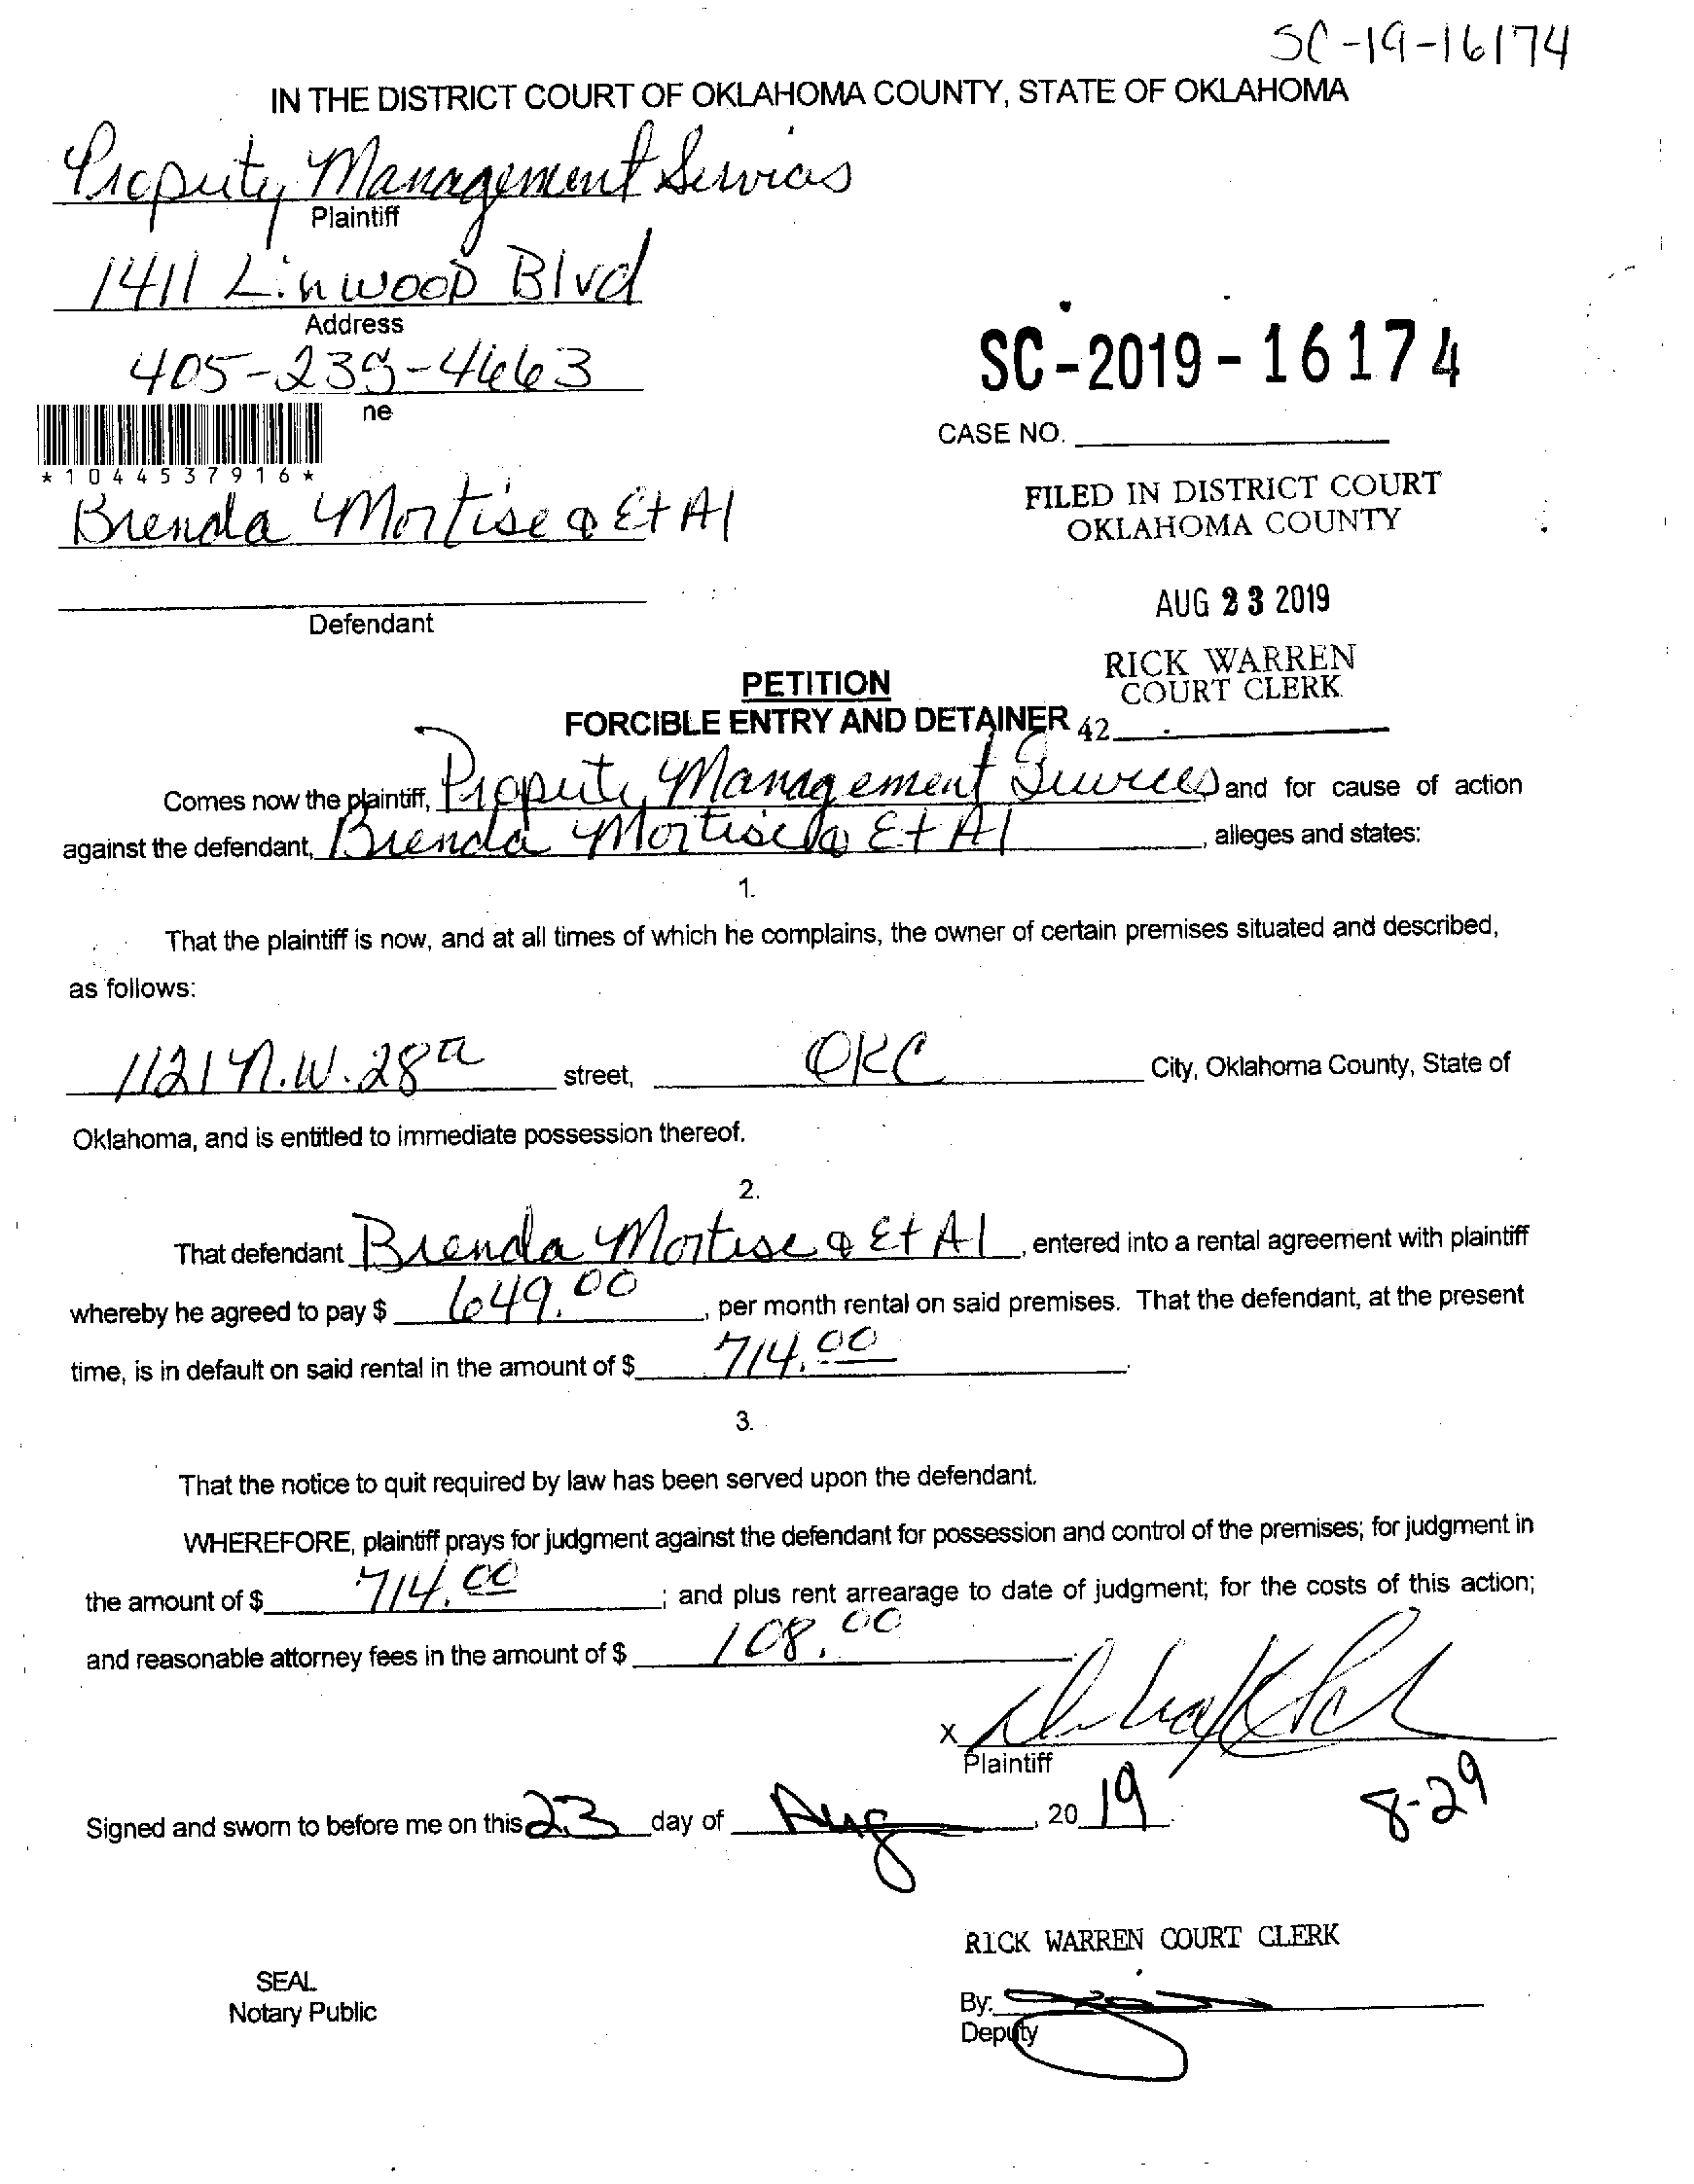 SC-19-16174
IN THE DISTRICT COURT OF OKLAHOMA COUNTY, STATE OF OKLAHOMA
Property Management Services
Plaintiff
1411 Linwood Blvd
Address
405-239-4663
ne
*1044537916*
SC-2019-16174
CASE NO.
Brenda Et Al
FILED IN DISTRICT COURT
OKLAHOMA COUNTY
Defendant
AUG 23 2019
RICK WARREN
COURT CLERK
PETITION
FORCIBLE ENTRY AND DETAINER
42
Comes now the plaintiff, Property Management Services and for cause of action
against the defendant, Brenda Et Al, alleges and states:
1.
That the plaintiff is now, and at all times of which he complains, the owner of certain premises situated and described,
as follows:
1121 N.W. 28th street, OKC City, Oklahoma County, State of
Oklahoma, and is entitled to immediate possession thereof.
2.
That defendant Brenda Et Al, entered into a rental agreement with plaintiff
whereby he agreed to pay $ 649.00, per month rental on said premises. That the defendant, at the present
time, is in default on said rental in the amount of $ 714.00.
3.
That the notice to quit required by law has been served upon the defendant.
WHEREFORE, plaintiff prays for judgment against the defendant for possession and control of the premises; for judgment in
the amount of $ 714.00; and plus rent arrearage to date of judgment; for the costs of this action;
and reasonable attorney fees in the amount of $ 108.00
X
Plaintiff
Signed and sworn to before me on this 23 day of Aug, 20 19
8-29
RICK WARREN COURT CLERK
SEAL
Notary Public
By:
Deputy